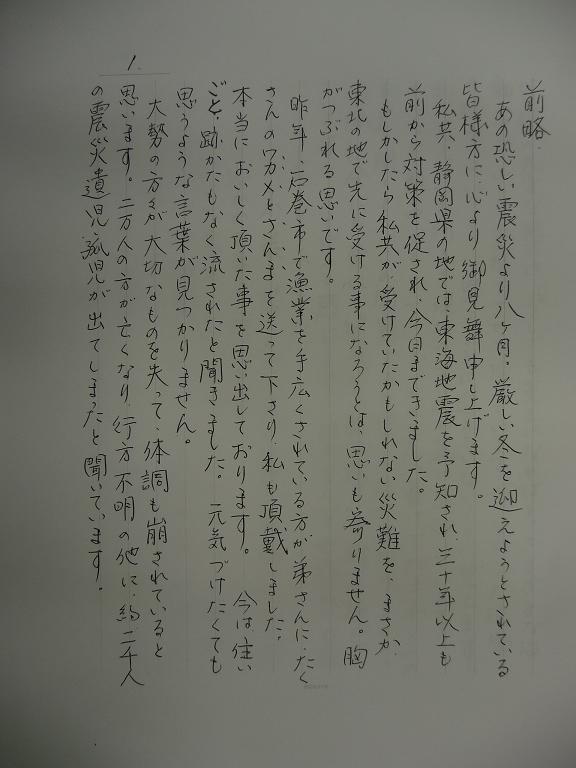 1.
前略、
あの恐しい震災より八ヶ月。厳しい冬を迎えようとされている
皆様方に、心より御見舞申し上げます。
私共、静岡県の地では、東海地震を予知され、三十年以上も
前から対策を促され、今日まできました。
もしかしたら私共が、受けていたかもしれない災難を、まさか、
東北の地で先に受ける事になろうとは、思いも寄りません。胸
がつぶれる思いです。
昨年、石巻市で漁業を手広くされている方が弟さんに、たく
さんのワカメとさんまを送って下さり、私も頂戴しました。
本当においしく頂いた事を思い出しております。今は住い
ごと、跡かたもなく流されたと聞きました。元気づけたくても
思うような言葉が見つかりません。
大勢の方々が大切なものを失って、体調も崩されていると
思います。二万人の方が亡くなり、行方不明の他に、約二千人
の震災遺児孤児が出てしまったと聞いています。